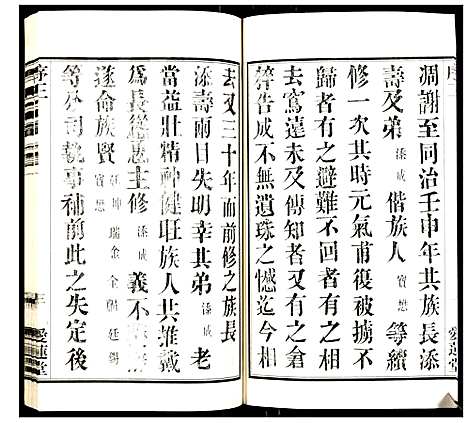 凋謝至同治壬申年其族長添
壽及弟添成偕族人寶懋等續
修一次其時元氣甫復被擄不
歸者有之避難不回者有之相
去寫遠未及傳知者有之倉
猝告成不無遺珠之憾迄今相
去又三十年而前修之族長
添壽兩目失明幸其弟添成老
當益壯精神健旺族人共推戴
為長慫恿主修添成義不
遂侖族賢寶懋乾坤瑞金全錫廷錫
等分司執事補前此之失定後
序三
三
愛蓮堂